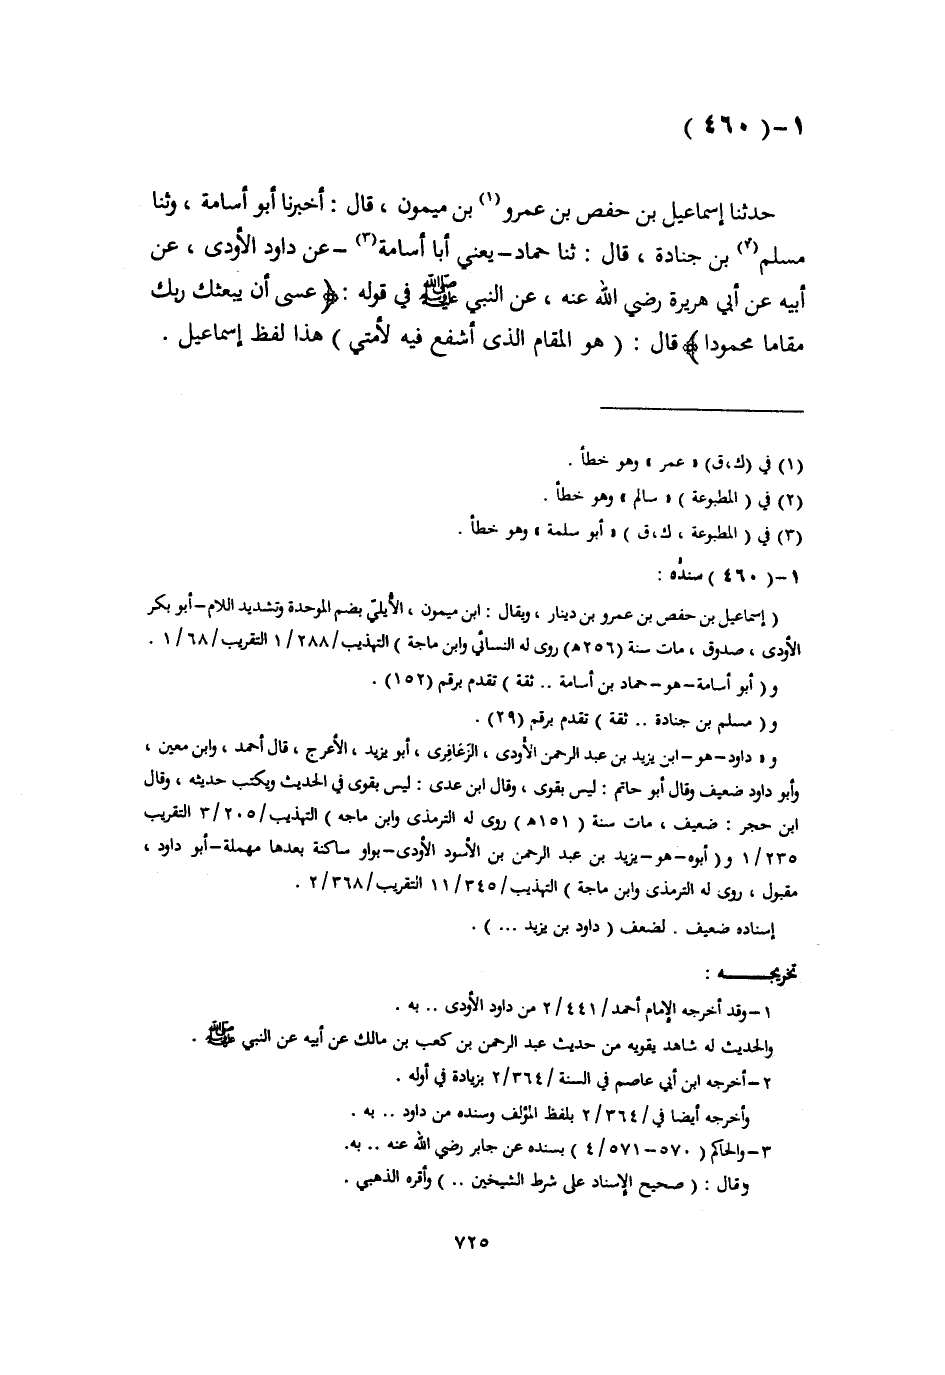 ١-( ٤٦٠ )
حدثنا إسماعيل بن حفص بن عمرو(١) بن ميمون ، قال : أخبرنا أبو أسامة ، وثنا
مسلم(٢) بن جنادة ، قال : ثنا حماد-يعني أبا أسامة(٣) -عن داود الأودى ، عن
أبيه عن أبي هريرة رضي الله عنه ، عن النبي ﷺ في قوله :﴿ عسى أن يبعثك ربك
مقاما محمودا ﴾ قال : ( هو المقام الذى أشفع فيه لأمتي ) هذا لفظ إسماعيل .
(١) في (ك،ق) « عمر » وهو خطأ .
(٢) في ( المطبوعة ) « سالم » وهو خطأ .
(٣) في ( المطبوعة ، ك،ق ) « أبو سلمة » وهو خطأ .
١-( ٤٦٠ ) سندُه :
( إسماعيل بن حفص بن عمرو بن دينار ، ويقال : ابن ميمون ، الأُيليّ بضم الموحدة وتشديد اللام-أبو بكر
الأودى ، صدوق ، مات سنة (٢٥٦هـ) روى له النسائي وابن ماجة ) التهذيب/٢٨٨/ ١ التقريب/٦٨/ ١ .
و ( أبو أسامة-هو-حماد بن أسامة .. ثقة ) تقدم برقم (١٥٢) .
و ( مسلم بن جنادة .. ثقة ) تقدم برقم (٢٩) .
و « داود-هو-ابن يزيد بن عبد الرحمن الأودى ، الزعافرى ، أبو يزيد ، الأعرج ، قال أحمد ، وابن معين ،
وأبو داود ضعيف وقال أبو حاتم : ليس بقوى ، وقال ابن عدى : ليس بقوى في الحديث ويكتب حديثه ، وقال
ابن حجر : ضعيف ، مات سنة ( ١٥١هـ ) روى له الترمذى وابن ماجه ) التهذيب/٢٠٥/ ٣ التقريب
٢٣٥/ ١ و ( أبوه-هو-يزيد بن عبد الرحمن بن الأسود الأودى-بواو ساكنة بعدها مهملة-أبو داود ،
مقبول ، روى له الترمذى وابن ماجة ) التهذيب/٣٤٥/ ١١ التقريب/٣٦٨/ ٢ .
إسناده ضعيف . لضعف ( داود بن يزيد ... ) .
تخريجـــــه :
١-وقد أخرجه الإمام أحمد/٤٤١/ ٢ من داود الأودى .. به .
والحديث له شاهد يقويه من حديث عبد الرحمن بن كعب بن مالك عن أبيه عن النبي ﷺ .
٢-أخرجه ابن أبي عاصم في السنة /٣٦٤/ ٢ بزيادة في أوله .
وأخرجه أيضا في/٣٦٤/ ٢ بلفظ المؤلف وسنده من داود .. به .
٣-والحاكم ( ٥٧٠-٥٧١/ ٤ ) بسنده عن جابر رضي الله عنه .. به.
وقال : ( صحيح الإسناد على شرط الشيخين .. ) وأقره الذهبي .
٧٢٥